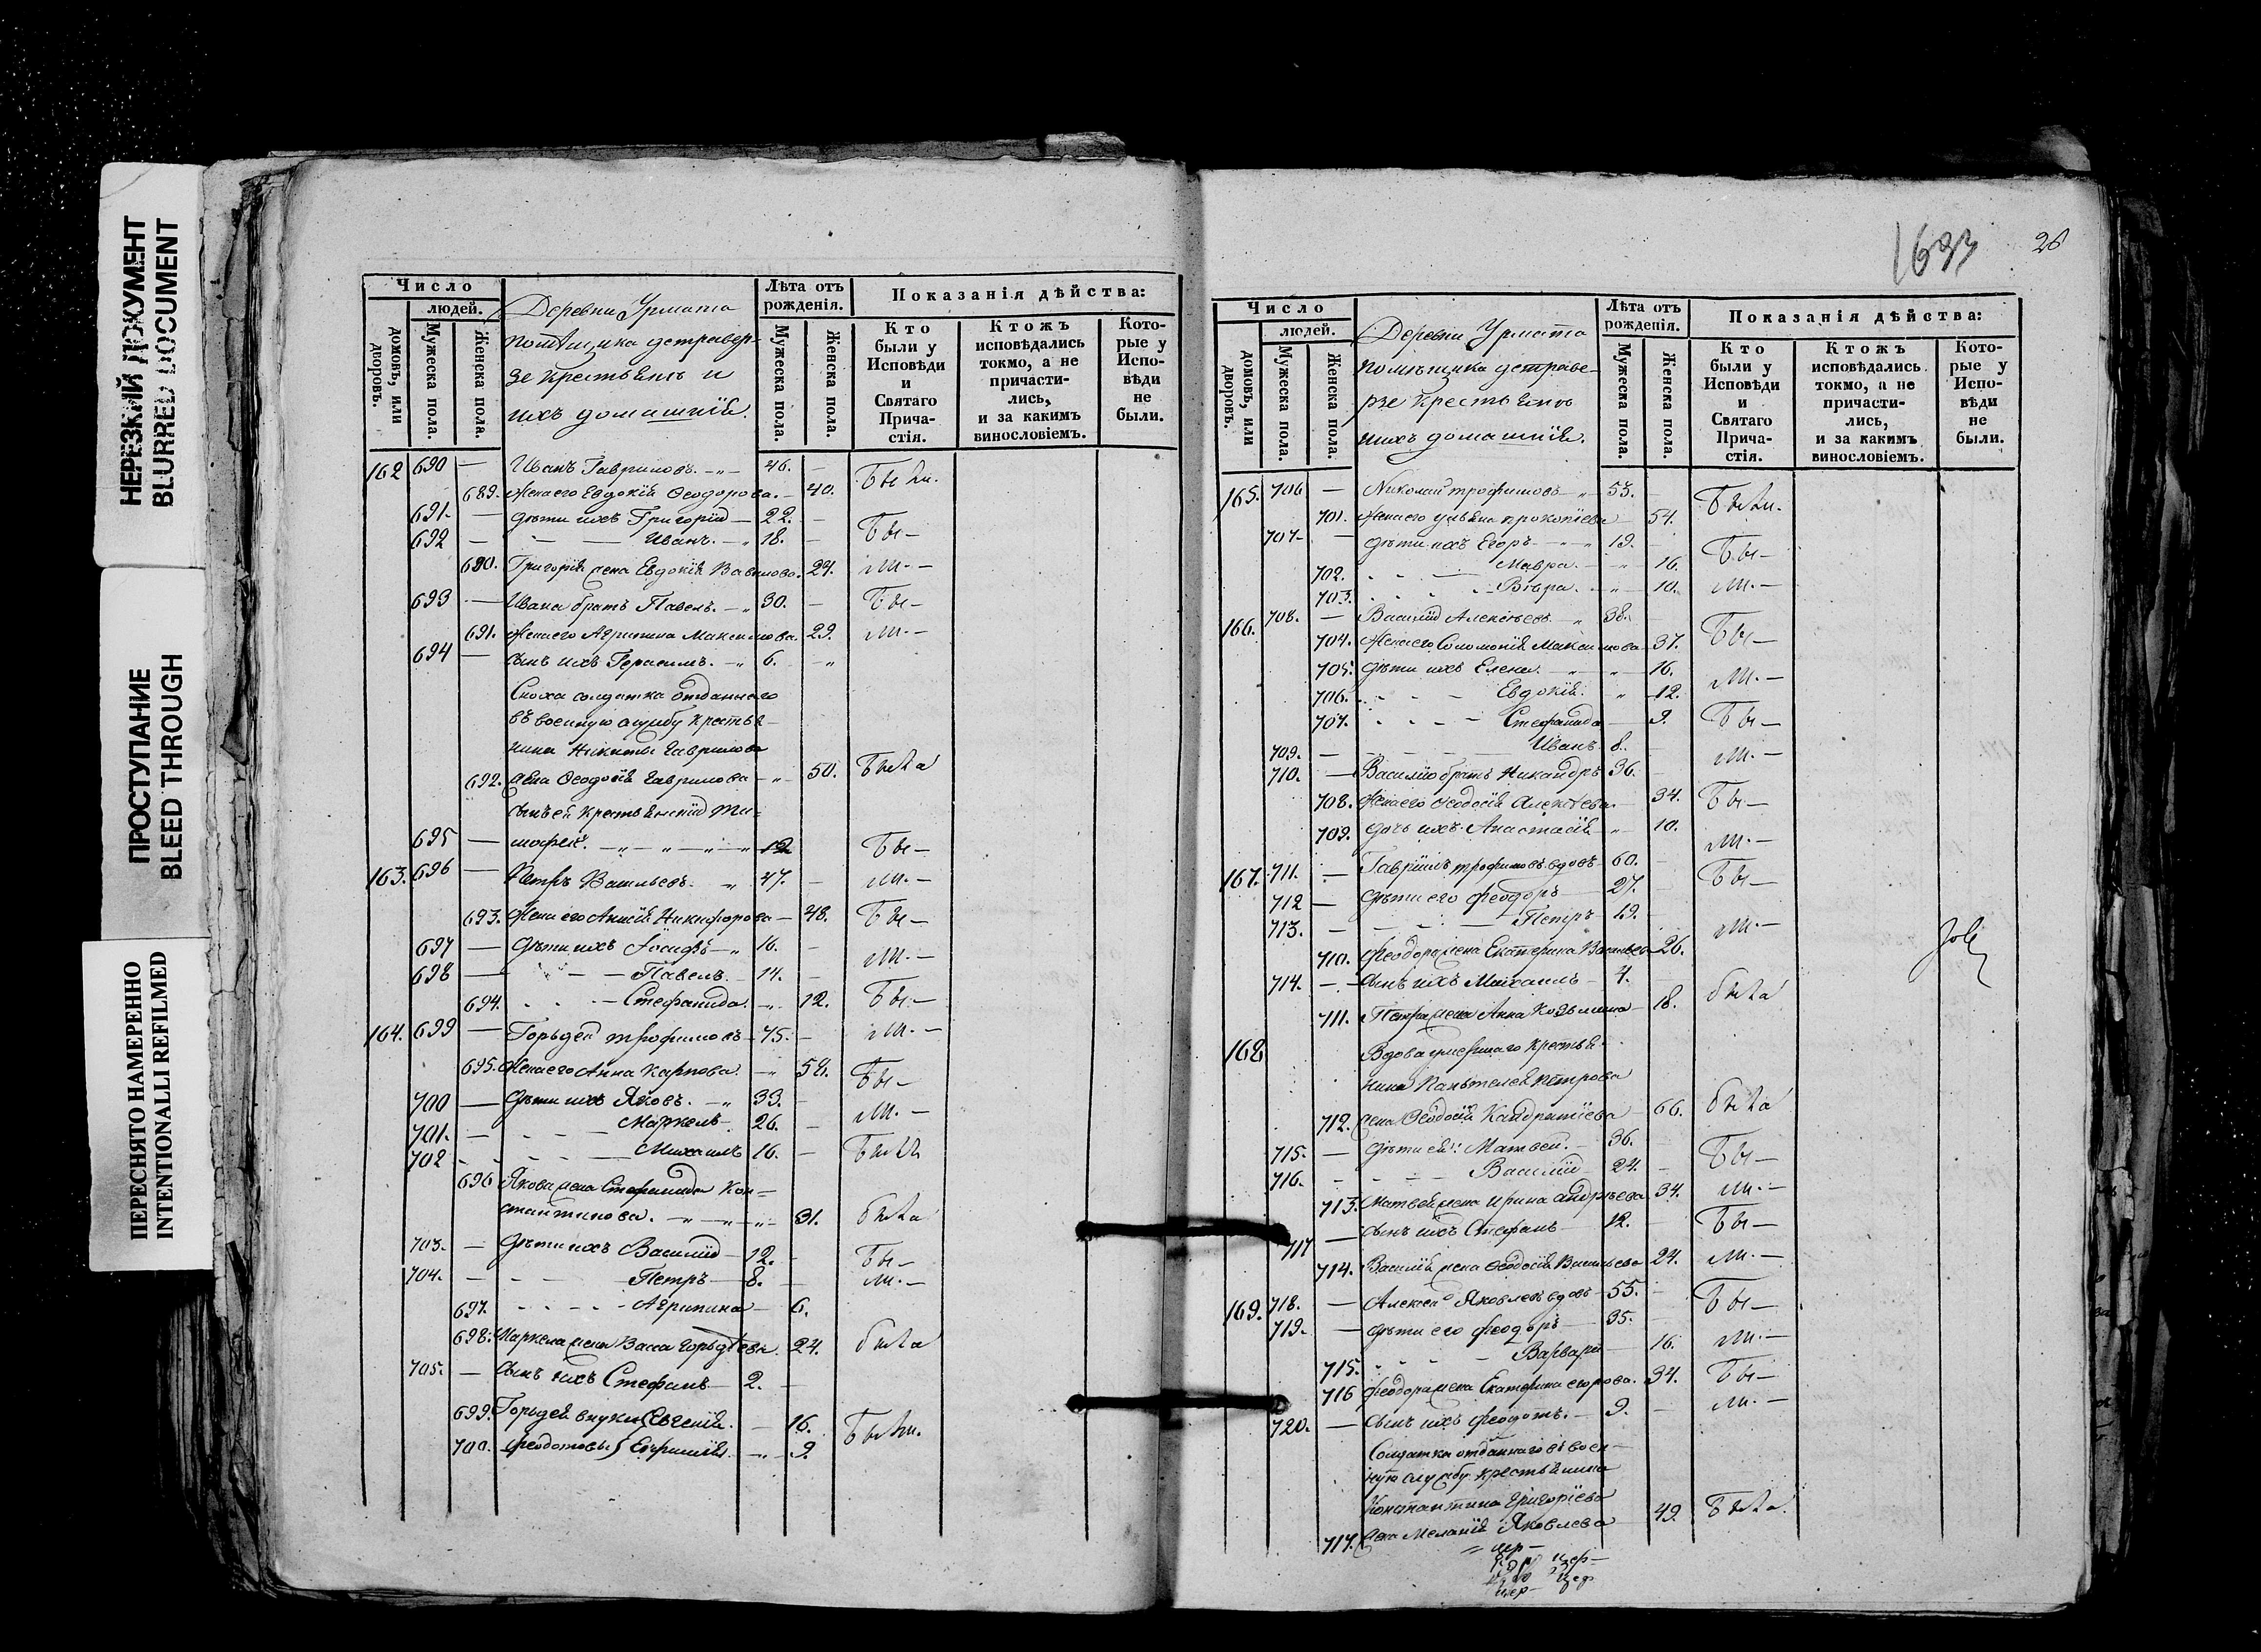 НЕРЕЗКИЙ ДОКУМЕНТ
BLURRED DOCUMENT
ПРОСТУПАНИЕ
BLEED THROUGH
ПЕРЕСНЯТО НАМЕРЕННО
INTENTIONALLI REFILMED
Число
людей.
домовъ, или дворовъ.
Мужеска пола.
Женска пола.
Деревни Урмата
помѣщика
крестьянъ и
ихъ домашнія.
Лѣта отъ рожденія.
Мужеска пола.
Женска пола.
Показанія дѣйства:
Кто были у Исповѣди и Святаго Прича- стія.
Ктожъ исповѣдались токмо, а не причасти- лись, и за какимъ винословіемъ.
Кото- рые у Испо- вѣди не были.
162 690 — Иванъ Гавриловъ. 46. — Были.
689. Жена его Евдокія Ѳеодорова. — 40.
691. — дѣти ихъ Григорій — 22. —
692 — Иванъ. — 18. — Бы—
690. Григорія жена Евдокія Вавилова. 24. ли. —
693 — Ивана братъ Павелъ. — 30. — Бы—
691. Жена его Агрипина Максимова. 29. ли. —
694 — сынъ ихъ Герасимъ. — 6. —
Сноха солдатка отданнаго
въ военную службу крестья-
нина Никиты Гаврилова
692. жена Ѳеодосія Гаврилова — 50. Была
сынъ ей крестьянскій Ти-
695 — мофей. — 12 Бы—
163. 696 — Петръ Васильевъ. 47. — ли. —
693. Жена его Анисія Никифорова — 48. Бы—
697 — дѣти ихъ Іосифъ — 16. —
698 — Павелъ. 14. — ли. —
694. Стефанида. — 12. Бы. —
164. 699 — Горьдей Трофимовъ — 75. — ли. —
695. Жена его Анна Карпова. — 58. Бы—
700 — Дѣти ихъ Яковъ. — 33. —
701. — Маркелъ. 26. — ли. —
702 Михаилъ 16. — Былъ
696 Якова жена Стефанида Кон-
стантинова. — 31. была
703. — Дѣти ихъ Василій — 12. — Бы—
704. — Петръ — 8. — ли. —
697. Агрипина — 6.
698. Маркела жена Васса Горьдѣева. 24. была
705. — Сынъ ихъ Стефанъ — 2. —
699. Горьдея внуки Евгенія. — 16. Были.
700. Ѳеодотовы — 9.
1693 26
Число
людей.
домовъ, или дворовъ.
Мужеска пола.
Женска пола.
Деревни Урмата
помѣщика
крестьянъ
ихъ домашнія.
Лѣта отъ рожденія.
Мужеска пола.
Женска пола.
Показанія дѣйства:
Кто были у Исповѣди и Святаго Прича- стія.
Ктожъ исповѣдались токмо, а не причасти- лись, и за какимъ винословіемъ.
Кото- рые у Испо- вѣди не были.
165. 706 — Николай Трофимовъ — 53. — Были.
701. Жена его Ульяна Прокопіева — 54.
707 — дѣти ихъ Егоръ — 19. — Бы—
702. Мавра. — 16.
703. Вѣра. — 10. ли. —
166. 708. — Василій Алексѣевъ — 38. —
704. Жена его Соломонія Максимова 37. Бы—
705. дѣти ихъ Елена. — 16.
706. Евдокія. 12. ли. —
707. Стефанида — 9. Бы—
709. — Иванъ. 8. — ли. —
710. — Василію братъ Никандръ 36. —
708. Жена его Ѳеодосія Алексѣева. 34. Бы—
709. дочь ихъ Анастасія — 10. ли. —
167. 711. — Гавріилъ Трофимовъ вдовъ 60. —
712 — дѣти его Феодоръ — 27. — Бы—
713. — Петръ — 19. —
710. Феодора жена Екатерина Васильева 26. ли. —
714. — Сынъ ихъ Михаилъ — 4. —
711. Петра жена Анна Козьмина — 18. была
168 Вдова умершаго крестья-
нина Пантелея Петрова
712. жена Ѳеодосія 66. была
715. — дѣти ей: Матвей. — 36. —
716. — Василій — 24. — Бы—
713. Матвея жена Ирина Андреева 34. ли. —
717 — сынъ ихъ Стефанъ — 12. — Бы—
714. Василія жена Ѳеодосія Васильева 24. ли. —
169. 718. — Алексей Яковлевъ вдовъ 55. —
719. — дѣти его Феодоръ — 35. — Бы—
715. Варвара — 16. ли. —
716 Феодора жена Екатерина Егорова. 34. Бы—
720. — сынъ ихъ Феодотъ. — 9. — ли. —
Солдатка отданнаго въ воен-
ную службу крестьянина
Константина Григоріева
717. жена Меланія Яковлева — 49. Была.